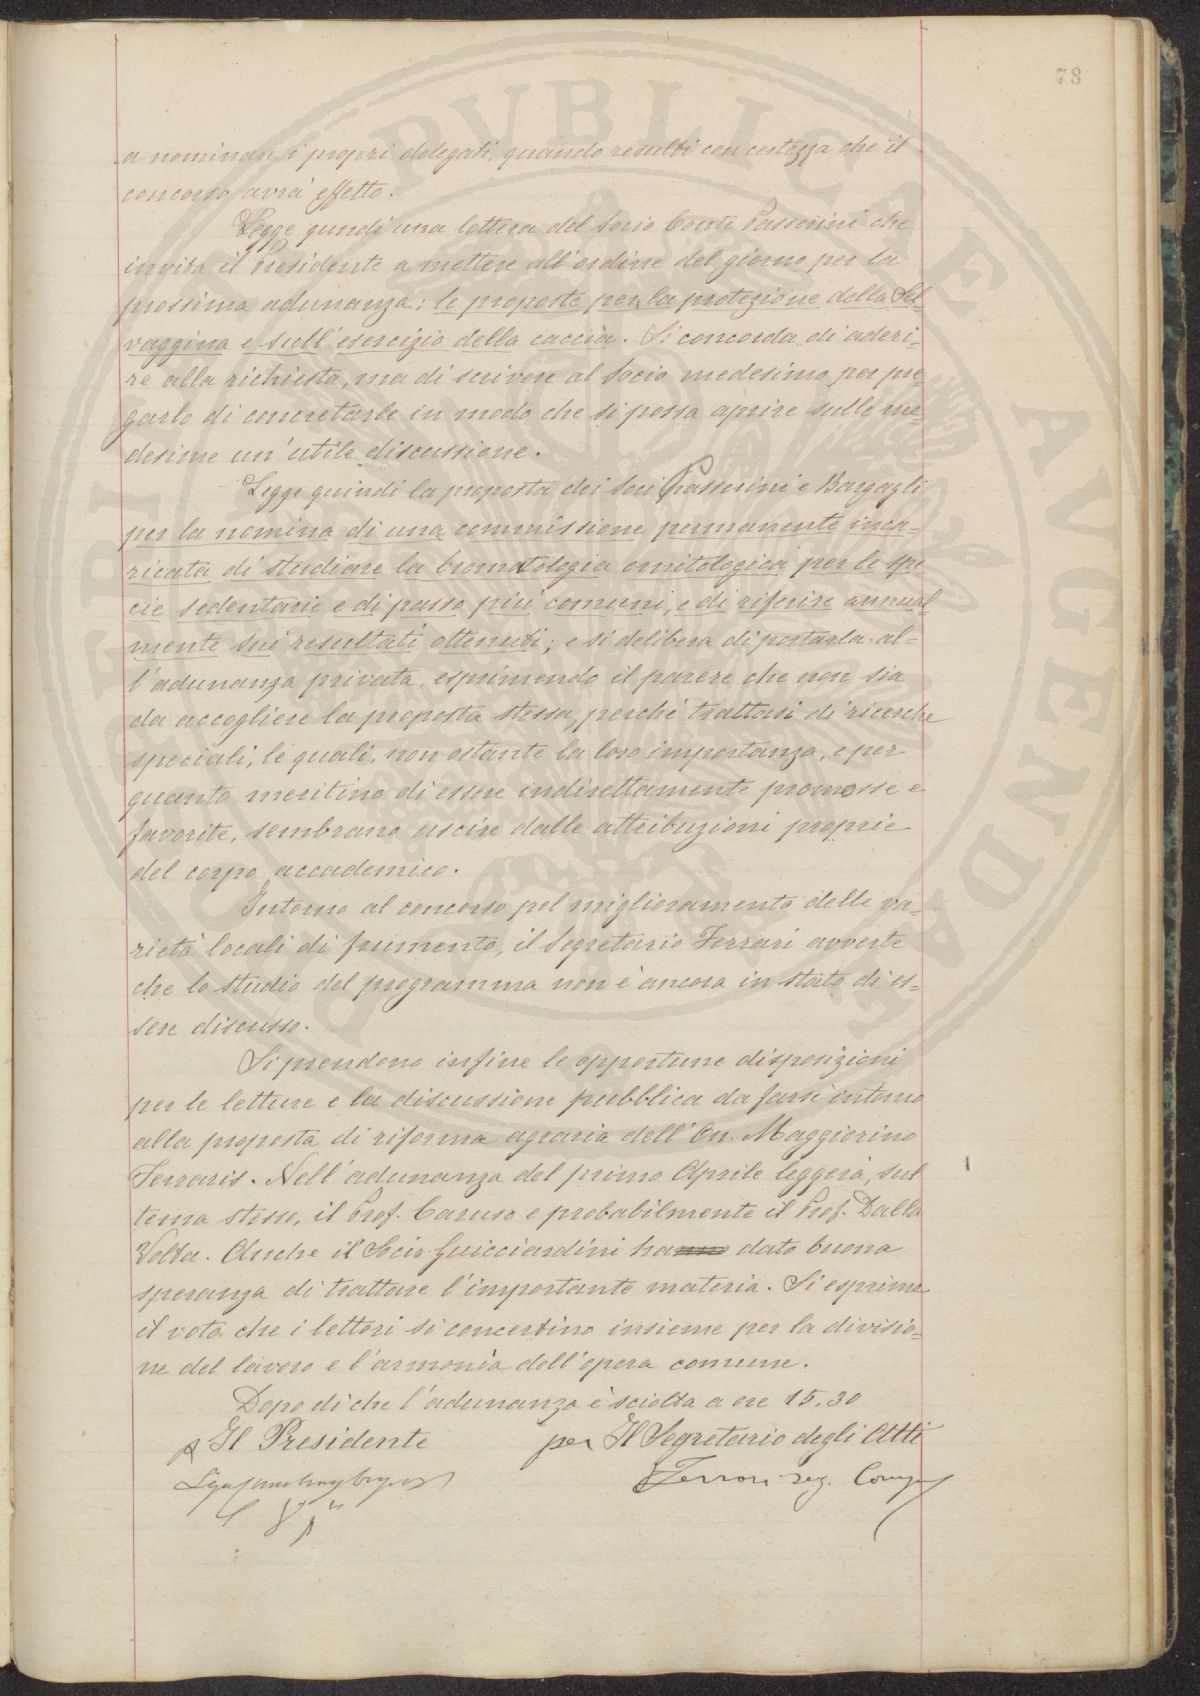 78
a nominare i propri delegati, quando resulti con certezza che il
concorso avrà effetto.
Legge quindi una lettera del Socio Conte Passerini che
invita il Presidente a mettere all'ordine del giorno per la
prossima adunanza: le proposte per la protezione della Sel-
vaggina e sull'esercizio della caccia. Si concorda di aderi-
re alla richiesta, ma di scrivere al Socio medesimo per pre-
garlo di concretarle in modo che si possa aprire sulle me-
desime un'utile discussione.
Legge quindi la proposta dei Soci Passerini e Bargagli
per la nomina di una commissione permanente inca-
ricata di studiare la bromatologia ornitologica per le spe-
cie sedentarie e di passo più comuni, e di riferire annual
mente sui resultati ottenuti; e si delibera di portarla al-
l'adunanza privata, esprimendo il parere che non sia
da accogliere la proposta stessa, perchè trattasi di ricerche
speciali, le quali, non ostante la loro importanza, e per
quanto meritino di essere indirettamente promosse e
favorite, sembrano uscire dalle attribuzioni proprie
del corpo accademico.
Intorno al concorso pel miglioramento delle va-
rietà locali di frumento, il Segretario Ferrari avverte
che lo studio del programma non è ancora in stato di es-
sere discusso.
Si prendono infine le opportune disposizioni
per le letture e la discussione pubblica da farsi intorno
alla proposta di riforma agraria dell'On. Maggiorino
Ferraris. Nell'adunanza del primo Aprile leggerà, sul
tema stesso, il Prof. Caruso e probabilmente il Prof. Dalla
Volta. Anche il Socio Guicciardini hanno dato buona
speranza di trattare l'importante materia. Si esprime
il voto che i lettori si concertino insieme per la divisio-
ne del lavoro e l'armonia dell'opera comune.
Dopo di che l'adunanza è sciolta a ore 15,30
p Il Presidente per Il Segretario degli Atti
Ferrari seg.
PUBLICAE AUGENDAE